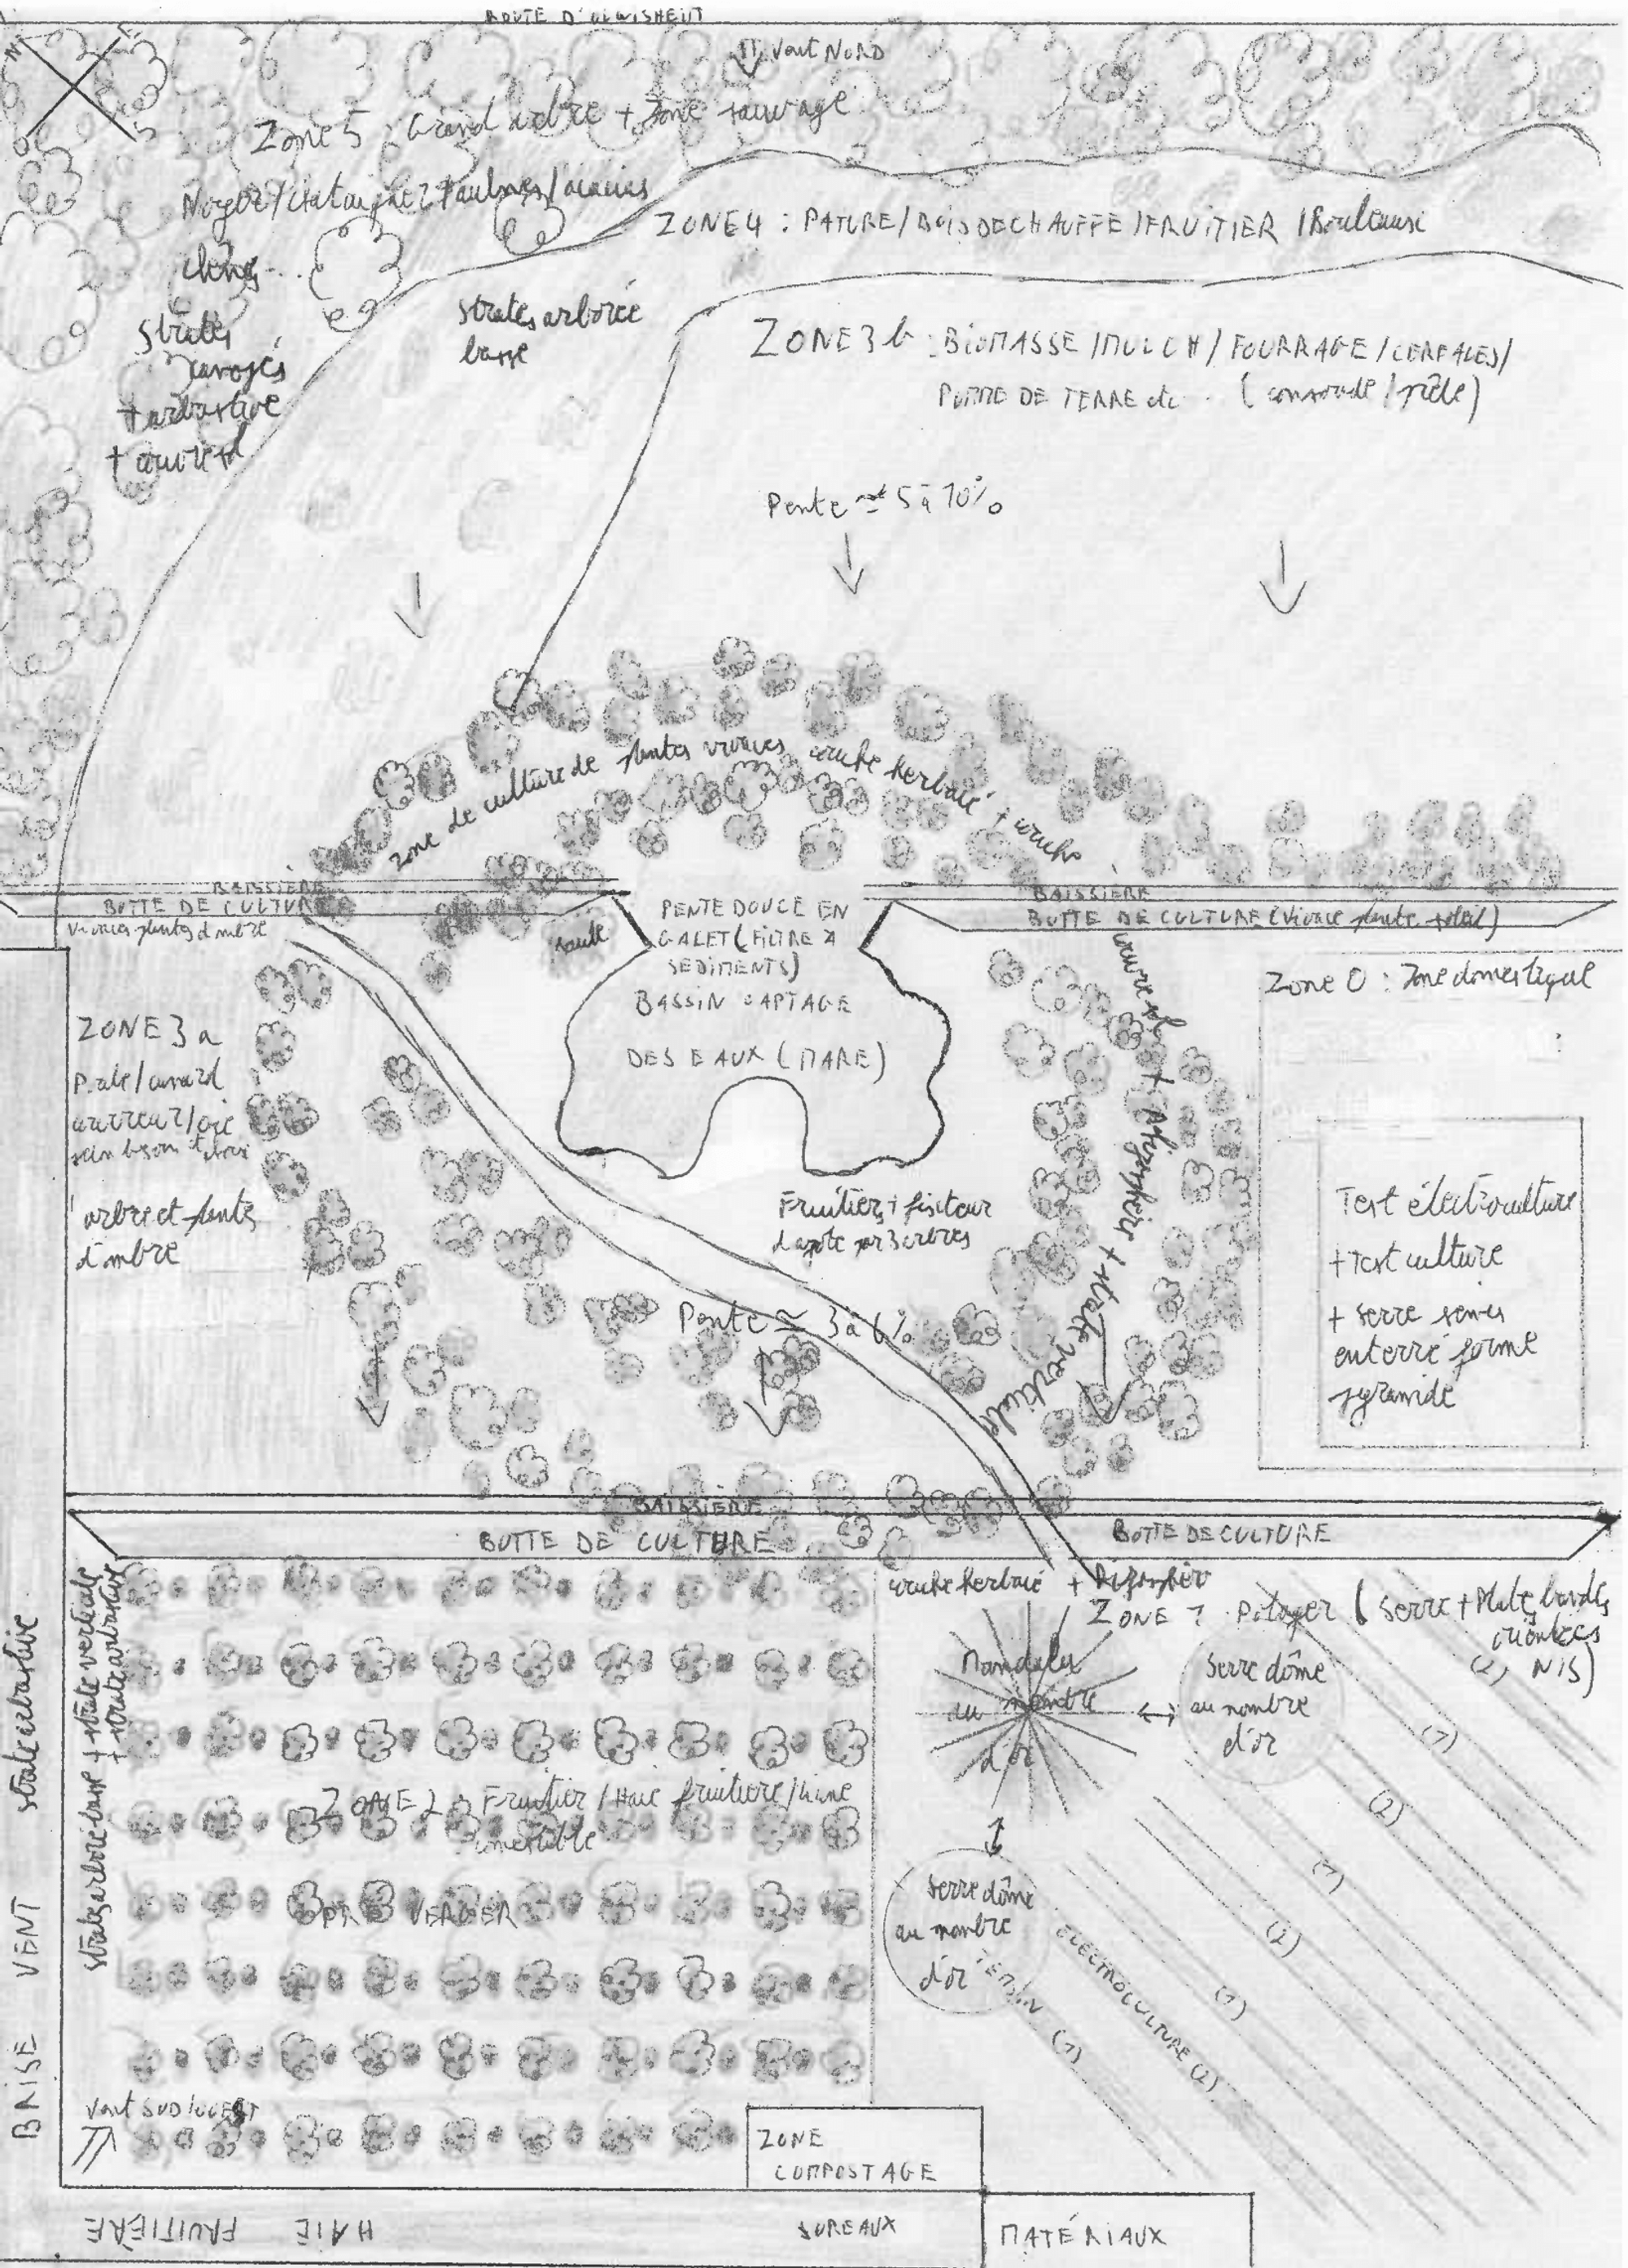 ROUTE D'
Vent NORD
N
E
O
S
Zone 5 : Grand arbre + Zone sauvage
Noyer/chataigner/aulnes/acacias
chênes...
Strates
+ arbustive
+ couvre sol
ZONE 4 : PATURE/BOIS DE CHAUFFE/FRUITIER/Bouleaux
Strates arborée
basse
ZONE 3 b : BIOMASSE/MULCH/FOURRAGE/CEREALES/
POMME DE TERRE etc.. (consoude/prêle)
Pente ≃ 5 à 10%
zone de culture de plantes vivaces couche herbacé + couche
BAISSIERE
BUTTE DE CULTURE
vivaces plantes d'ombre
BAISSIERE
BUTTE DE CULTURE (Vivace plante soleil)
PENTE DOUCE EN
GALET (FILTRE A
SEDIMENTS)
BASSIN CAPTAGE
DES EAUX (MARE)
saule
Zone 0 : Zone domestique
ZONE 3 a
Poule/canard
coureur/oie
arbre et plantes
d'ombre
couvre sol + Rhizosphère + strate verticale
Test électroculture
+ Test culture
+ serre semis
enterré forme
pyramide
Fruitiers + fixateur
d'azote par 3 arbres
Pente ≃ 3 à 6%
BAISSIERE
BUTTE DE CULTURE
BUTTE DE CULTURE
couche herbacé + Rhizosphère
ZONE 1 : Potager (serre + Plates bandes
orientées
N/S)
Mandala
au nombre
d'or
Serre dôme
au nombre
d'or
Serre dôme
au nombre
d'or
(1)
(2)
(1)
(2)
(1)
TEMOIN (1)
ELECTROCULTURE (2)
ZONE 2 : Fruitier/Haie fruitière/liane
comestible
PRE VERGER
strates arboré basse + strate verticale
+ strate arbustive
BRISE VENT strate arbustive
Vent SUD/OUEST
ZONE
COMPOSTAGE
HAIE FRUITIÈRE
SUREAUX
MATÉRIAUX